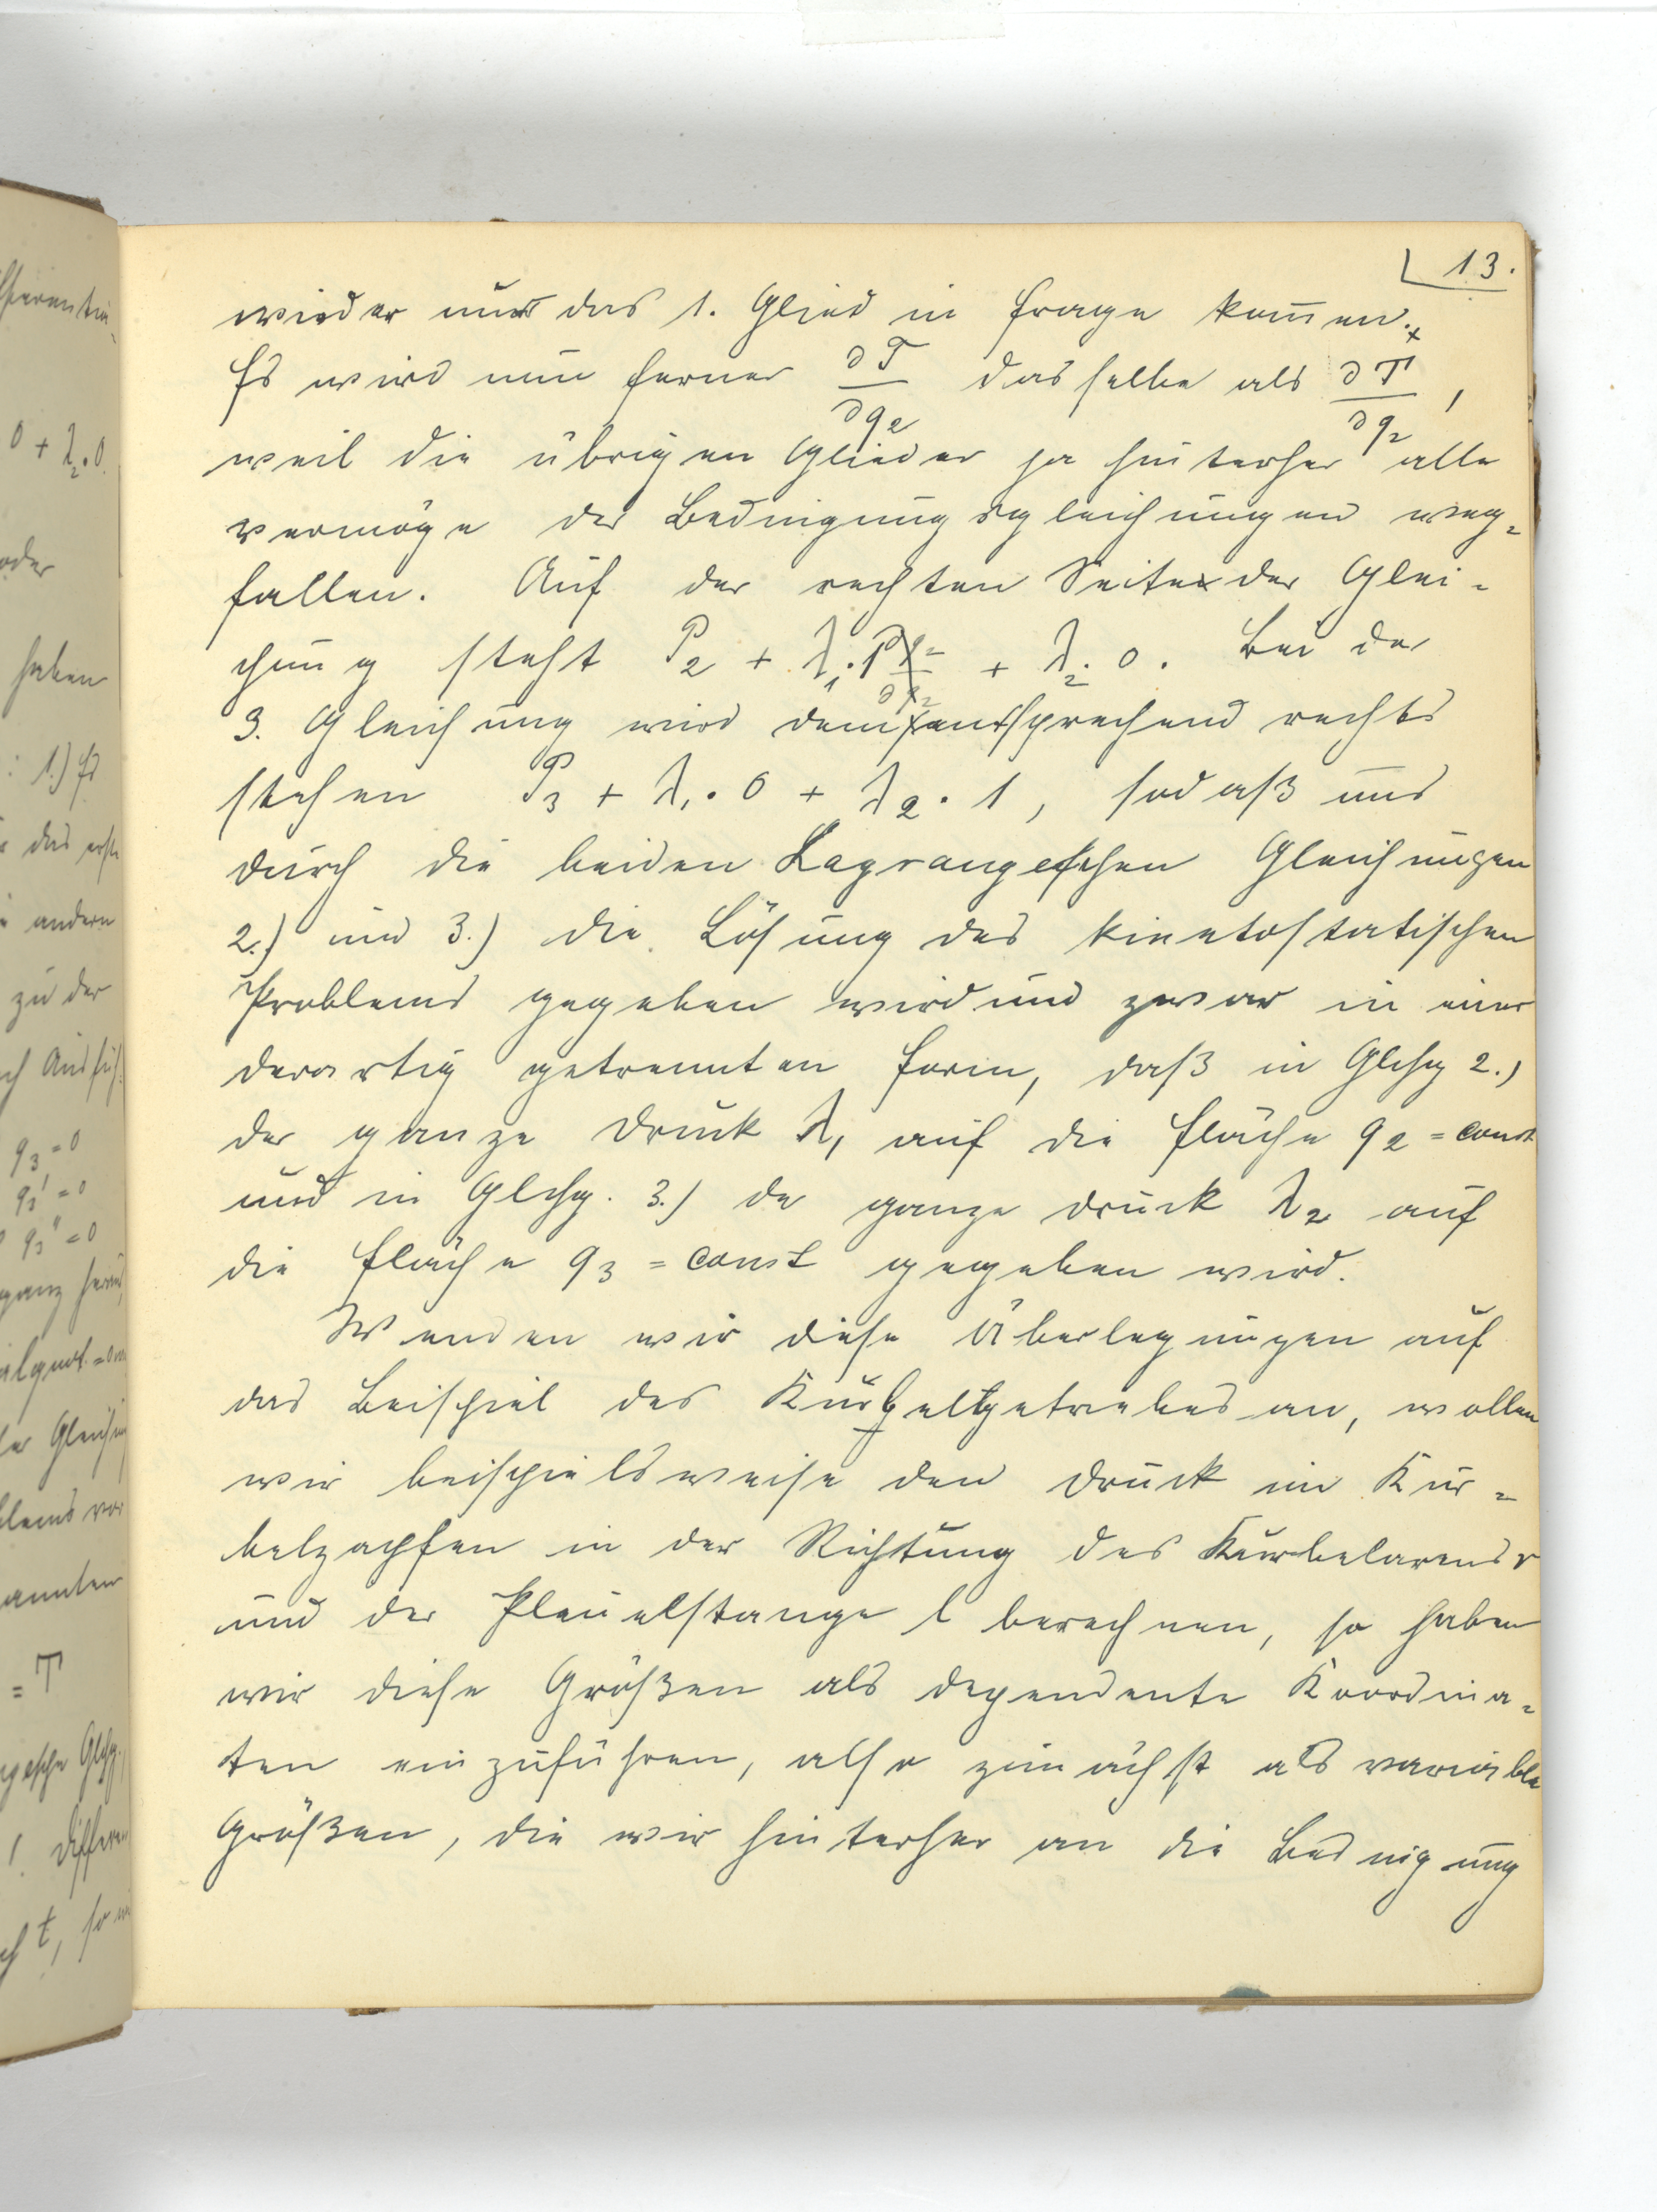 13.
wieder nur das 1. Glied in Frage kommen.
Es wird nun ferner ∂T/∂q2 dasselbe als ∂T/∂q2,
weil die übrigen Glieder ja hinterher alle
vermöge der Bedingungsgleichungen weg=
fallen. Auf der rechten Seite der Glei-
chung steht P2 + λ1·1 + λ2·0. Bei der
3. Gleichung wird dementsprechend rechts
stehen P3 + λ1·0 + λ2·1, sodaß uns
durch die beiden Lagrangeschen Gleichungen
2.) und 3.) die Lösung des kinetostatischen
Problems gegeben wird und zwar in einer
derartig getrennten Form, daß in Glchg 2.)
der ganze Druck λ1 auf die Fläche q2 = const
und in Glchg. 3.) der ganze Druck λ2 auf
die Fläche q3 = const gegeben wird.
Wenden wir diese Überlegungen auf
das Beispiel des Kurbelgetriebes an, wollen
wir beispielsweise den Druck im Kur=
belzapfen in der Richtung des Kurbelarms r
und der Pleuelstange l berechnen, so haben
wir diese Größen als dependente Koordina=
ten einzuführen, also zunächst als variable
Größen, die wir hinterher an die Bedingung
0 + λ2·0.
oder
haben
: 1.) Es
das erste
andern
zu der
q3 = 0
q3' = 0
q3'' = 0
ganz
= T
t, so